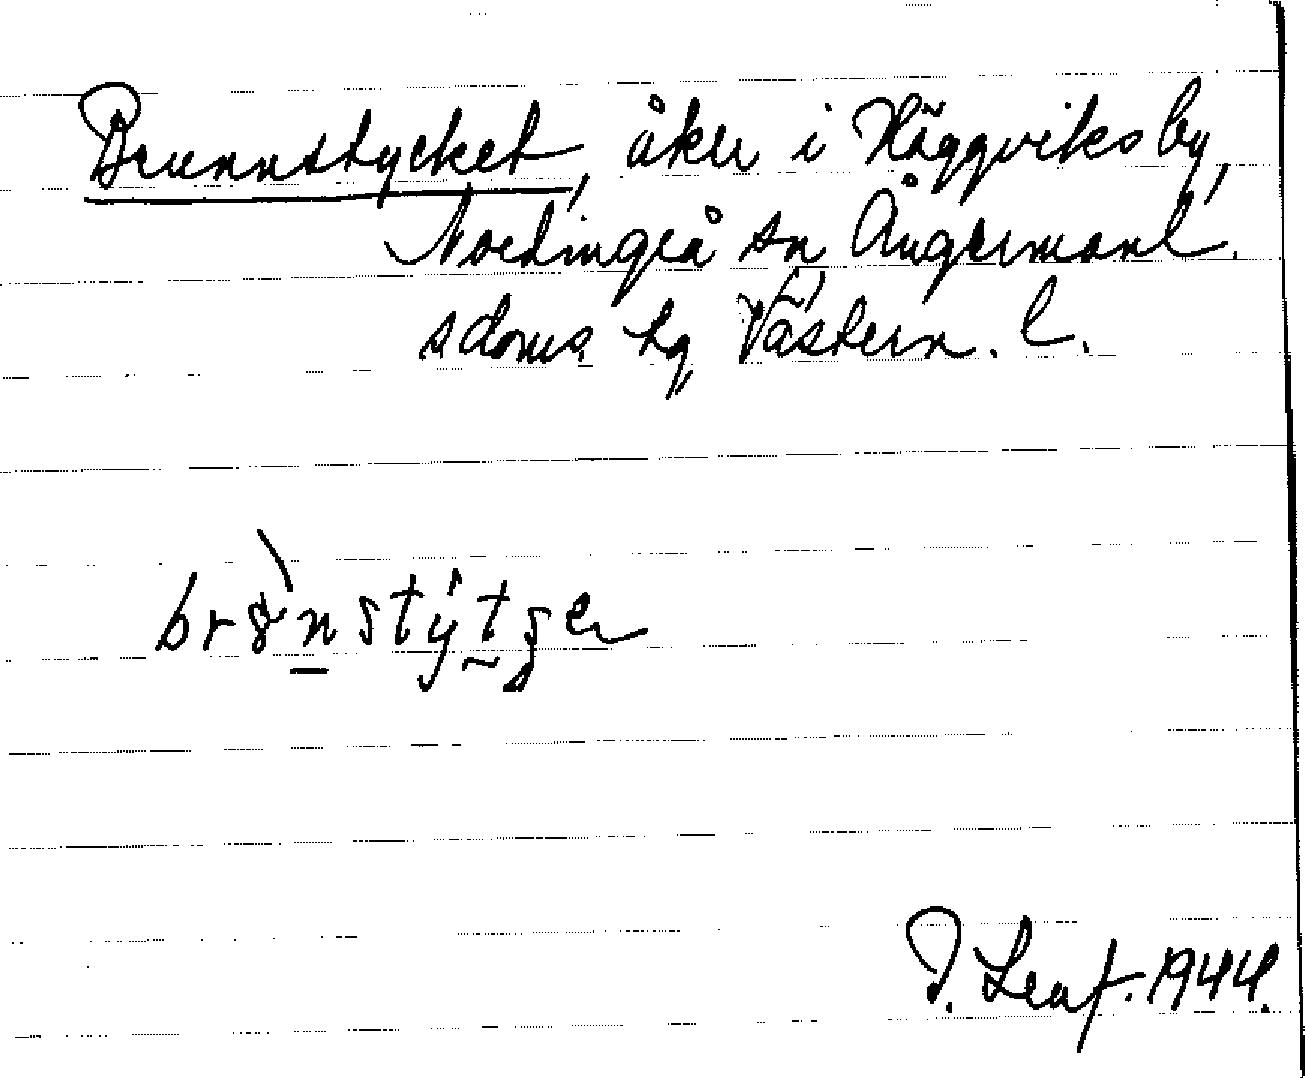 Brunnstycket, åker i Häggviks by,
Nordingrå sn, Ångermanl.
sdoms. tg, Västern. l.
brònstýtge
1944.